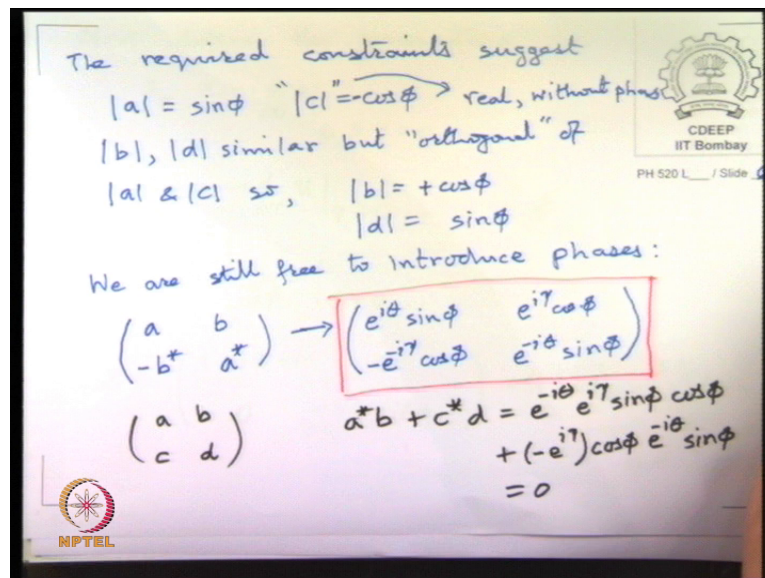 The required constraints suggest
|a| = sinφ "|c|" = -cosφ → real, without phase
|b|, |d| similar but "orthogonal" of
|a| & |c| so, |b| = + cosφ
|d| = sinφ
We are still free to introduce phases:
( a b ) → ( e^{iθ} sinφ e^{iγ} cosφ )
( -b* a* ) ( -e^{-iγ} cosφ e^{-iθ} sinφ )
( a b ) a*b + c*d = e^{-iθ} e^{iγ} sinφ cosφ
( c d ) + (-e^{iγ}) cosφ e^{-iθ} sinφ
= 0
CDEEP
IIT Bombay
PH 520 L___ / Slide
NPTEL